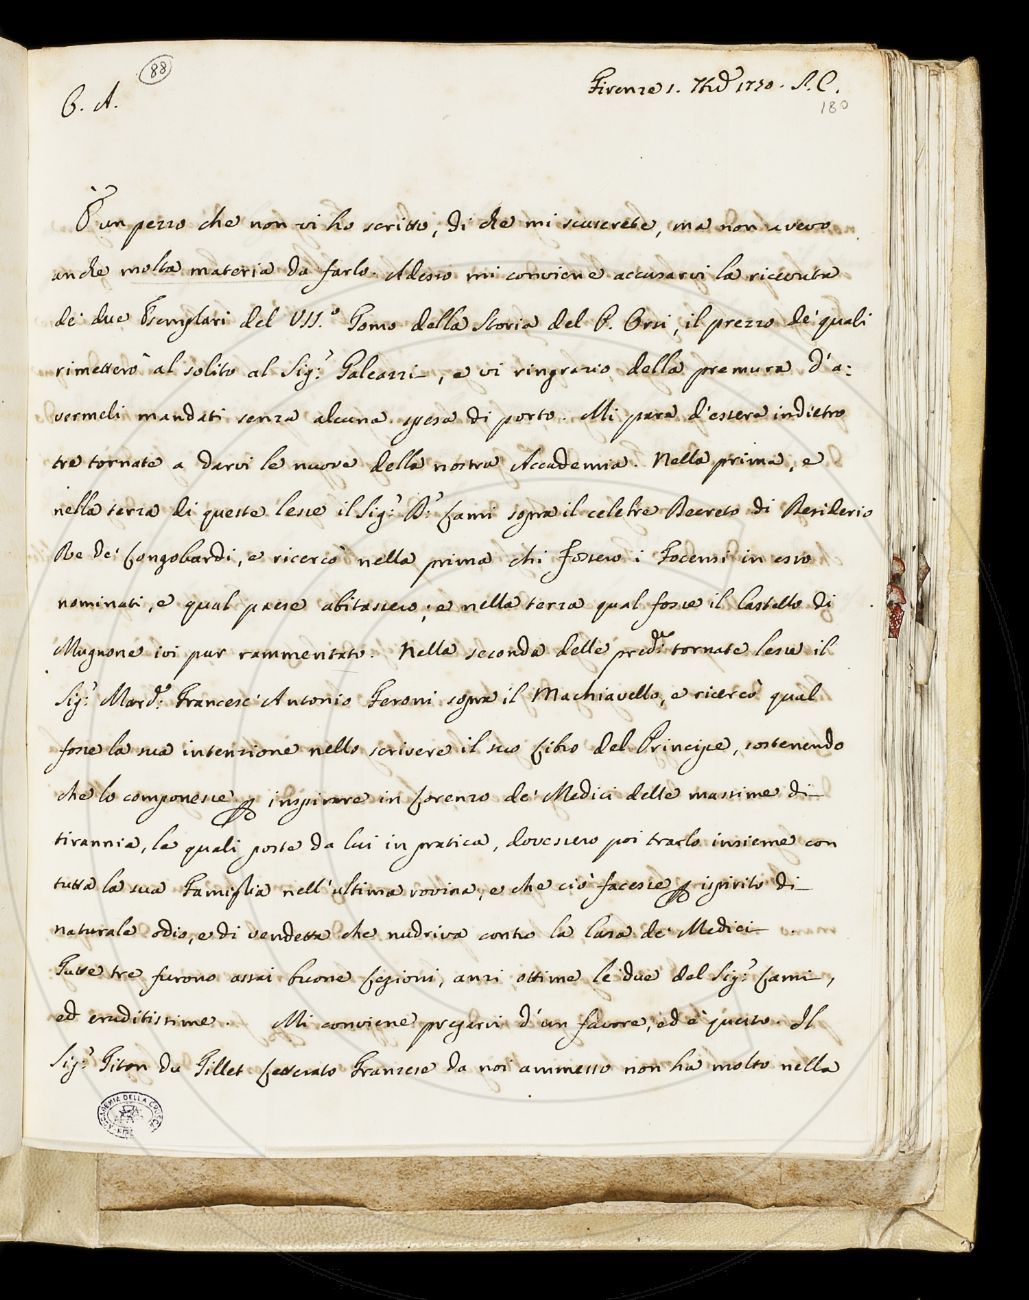 88
C. A.
Firenze 1. 7bre 1750. S. C.
180
È un pezzo che non vi ho scritto, di che mi scuserete, ma non avevo
anche molta materia da farlo. Adesso mi conviene accusarvi la ricevuta
de' due Esemplari del VII.º Tomo della Storia del P. Orsi, il prezzo de' quali
rimetterò al solito al Sig.r Galeazzi, e vi ringrazio della premura d'a:
vermeli mandati senza alcuna spesa di porto. Mi pare d'essere indietro
tre tornate a darvi le nuove della nostra Accademia. Nella prima, e
nella terza di queste lesse il Sig.r D.r Lami sopra il celebre Decreto di Desiderio
Re de' Longobardi, e ricercò nella prima chi fossero i Focensi in esso
nominati, e qual paese abitassero; e nella terza qual fosse il Castello di
Mugnone ivi pur rammentato. Nella seconda delle pred.e tornate lesse il
Sig.r March.e Francesc' Antonio Feroni sopra il Machiavello, e ricercò qual
fosse la sua intenzione nello scrivere il suo Libro del Principe, sostenendo
che lo componesse p inspirare in Lorenzo de' Medici delle massime di
tirannia, le quali poste da lui in pratica, dovessero poi trarlo insieme con
tutta la sua Famiglia nell'ultima rovina, e che ciò facesse p ispirito di
naturale odio, e di vendetta che nudriva contro la Casa de' Medici.
Tutte tre furono assai buone Lezioni, anzi ottime le due del Sig.r Lami,
ed eruditissime. Mi conviene pregarvi d'un favore, ed è questo. Il
Sig.r Titon du Tillet Letterato Franzese da noi ammesso non ha molto nella
ACCADEMIA DELLA CRUSCA